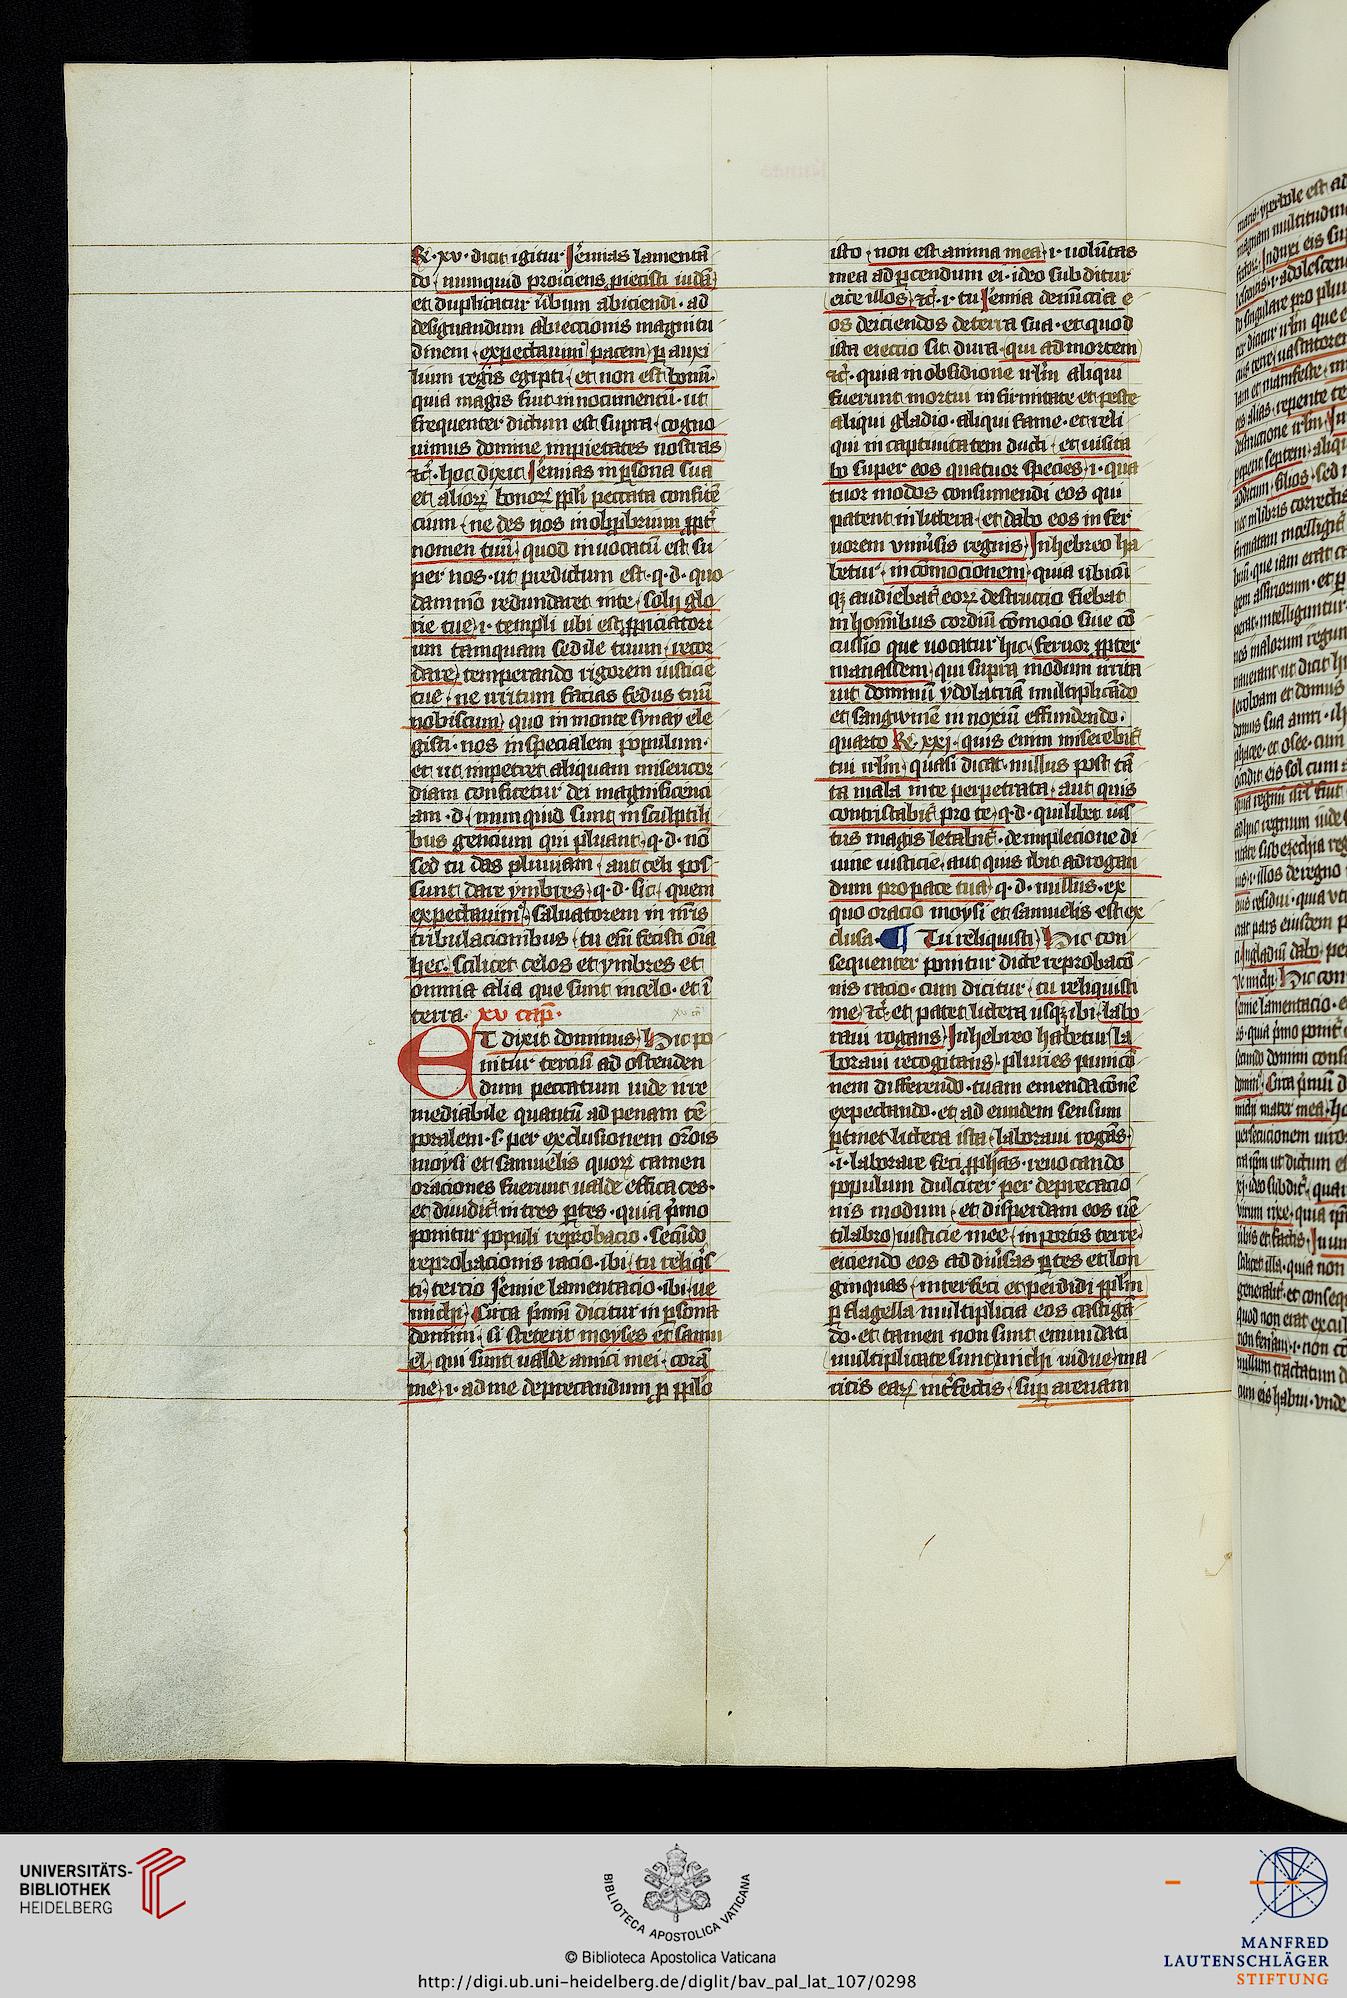 Re· xv· dicit igitur Jeremias lamentan̄
do numquid proiciens proiecisti iudā
et duplicatur ūbum abiciendi· ad
designandum abiectionis magnitu
dinem· expectauim9 pacem ꝑ auxi
lium regis egipti et non est bonū·
quia magis fuit in nocumentū· ut
frequenter dictum est supra· cogno
uimus domine impietates nostras
⁊c̄· hoc dixit Jeremias in ꝑsona sua
et alioꝝ bonoꝝ ppl̄i peccata confitē
cium· ne des nos in obprobrium ꝓpt̄
nomen tuū quod inuocatū est su
per nos· ut predictum est· q· d· quo
dāmō redundaret in te· solij glo
rie tue· i· templi ubi est ꝓpiciatori
um tamquam sedile tuum· recor
dare temperando rigorem iusticie
tue· ne irritum facias fedus tuū
nobiscum quo in monte synay ele
gisti· nos in specialem populum·
et ut impetret aliquam misericor
diam confitetur dei magnificenci
am· d· numquid sunt in sculptili
bus gencium qui pluant· q· d· nō
sed tu das pluuiam· aut celi pos
sunt dare ymbres· q· d· sic· quem
expectauim9· saluatorem in nr̄is
tribulacionibus· tu em̄ fecisti om̄ia
hec· scilicet celos et ymbres et
omnia alia que sunt in celo· et ī
terra· xv cap̄·
xv ca
ET dixit dominus Hic po
nitur terciū ad ostenden
dum peccatum iude irre
mediabile quantū ad penam tē
poralem· s· per exclusionem or̄ois
moysi et samuelis quoꝝ tamen
oraciones fuerunt ualde efficaces·
et diuidit̄ in tres ꝑtes· quia p̄mo
ponitur populi reprobacio· secūdo
reprobacionis racio· ibi· tu reliq̄s
ti· tercio Jeremie lamentacio· ibi· ue
michi Circa p̄mū dicitur in ꝑsona
domini· si steterit moyses et samu
el qui sunt ualde amici mei· corā
me· i· ad me deprecandum ꝓ ppl̄o
isto· non est anima mea· i· uolūtas
mea ad ꝑcendum ei· ideo subditur
eice illos ⁊c̄· i· tu Jeremia denūccia e
os deiciendos de terra sua· et quod
ista eiectio sit dura· qui ad mortem
⁊c̄· quia in obsidione irl̄m aliqui
fuerunt mortui infirmitate et peste
aliqui gladio· aliqui fame· et reli
qui in captiuitatem ducti· et uisita
bo super eos quatuor species· i· qua
tuor modos consumendi eos qui
patent in littera· et dabo eos in fer
uorem vniūsis regnis· In hebreo ha
betur· in cōmocionem· quia ubicū
qꝫ audiebat̄ eoꝝ destructio fiebat
in hom̄ibus cordiū cōmocio siue cō
cussio que uocatur hic· feruor ꝓpter
manassem· qui supra modum irrita
uit dominū ydolatriā multiplicādo
et sangwinē innoxiū effundendo·
quarto Re· xxi· quis enim miserebit̄
tui irl̄m· quasi dicat nullus post tā
ta mala in te perpetrata· aut quis
contristabit̄ pro te· q· d· quilibet ius
tus magis letabit̄· de implecione di
uine iusticie· aut quis ibit ad rogan
dum pro pace tua· q· d· nullus· ex
quo oracio moysi et samuelis est ex
clusa· ¶ Tu reliquisti Hic con
sequenter ponitur dicte reprobacō
nis racio· cum dicitur· tu reliquisti
me ⁊c̄ et patet littera usqꝫ ibi· labo
raui rogans· In hebreo habetur la
boraui recogitans· pluries punicō
nem differendo· tuam emendacōnē
expectando· et ad eundem sensum
ꝑtinet littera ista· laboraui rogās·
·i· laborare feci ꝓph̄as· reuocando
populum dulciter per deprecacio
nis modum· et disperdam eos uē
tilabro iusticie mee· in portis terre·
eiciendo eos ad diūsas ꝑtes et lon
ginquas· interfeci et perdidi ppl̄m
ꝑ flagella multiplicia eos castigā
do· et tamen non sunt emundati
multiplicate sunt michi uidue ma
ritis eaꝝ int̄fectis· sup̄ arenam
UNIVERSITÄTS-
BIBLIOTHEK
HEIDELBERG
BIBLIOTECA APOSTOLICA VATICANA
© Biblioteca Apostolica Vaticana
http://digi.ub.uni-heidelberg.de/diglit/bav_pal_lat_107/0298
MANFRED
LAUTENSCHLÄGER
STIFTUNG